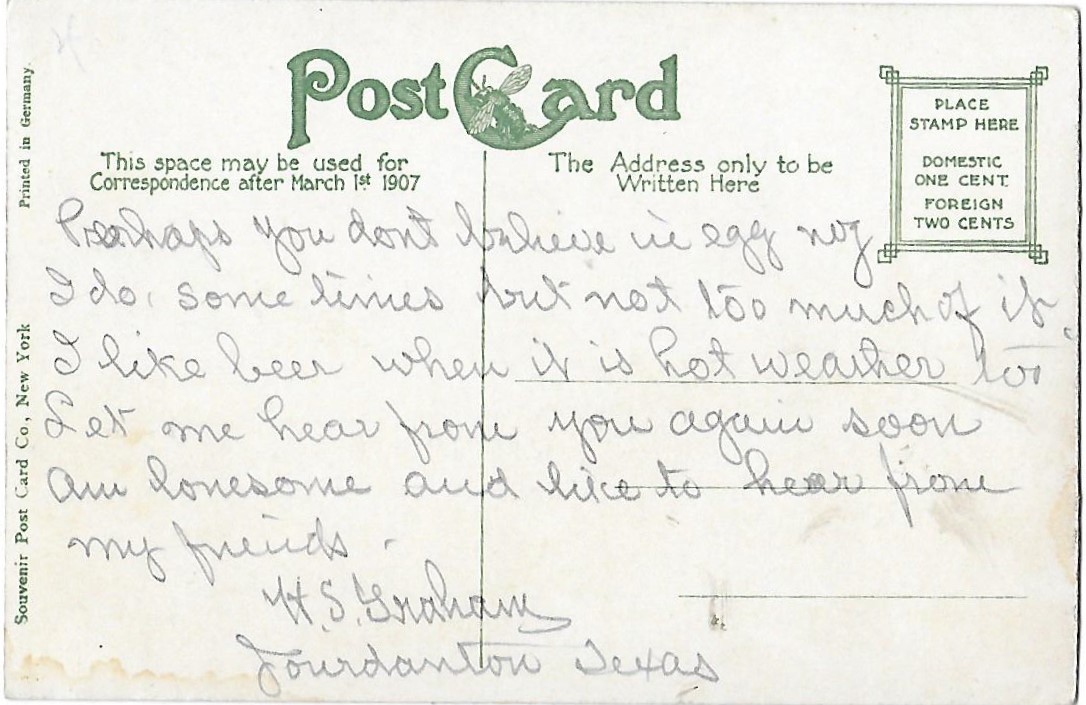 Post Card
This space may be used for
Correspondence after March 1st 1907
The Address only to be
Written Here
PLACE
STAMP HERE
DOMESTIC
ONE CENT.
FOREIGN
TWO CENTS
Printed in Germany.
Souvenir Post Card Co., New York
Perhaps you dont believe in egg nog
I do, some times but not too much of it.
I like beer when it is hot weather too
Let me hear from you again soon
am lonesome and like to hear from
my friends.
H. S. Graham
Jourdanton Texas